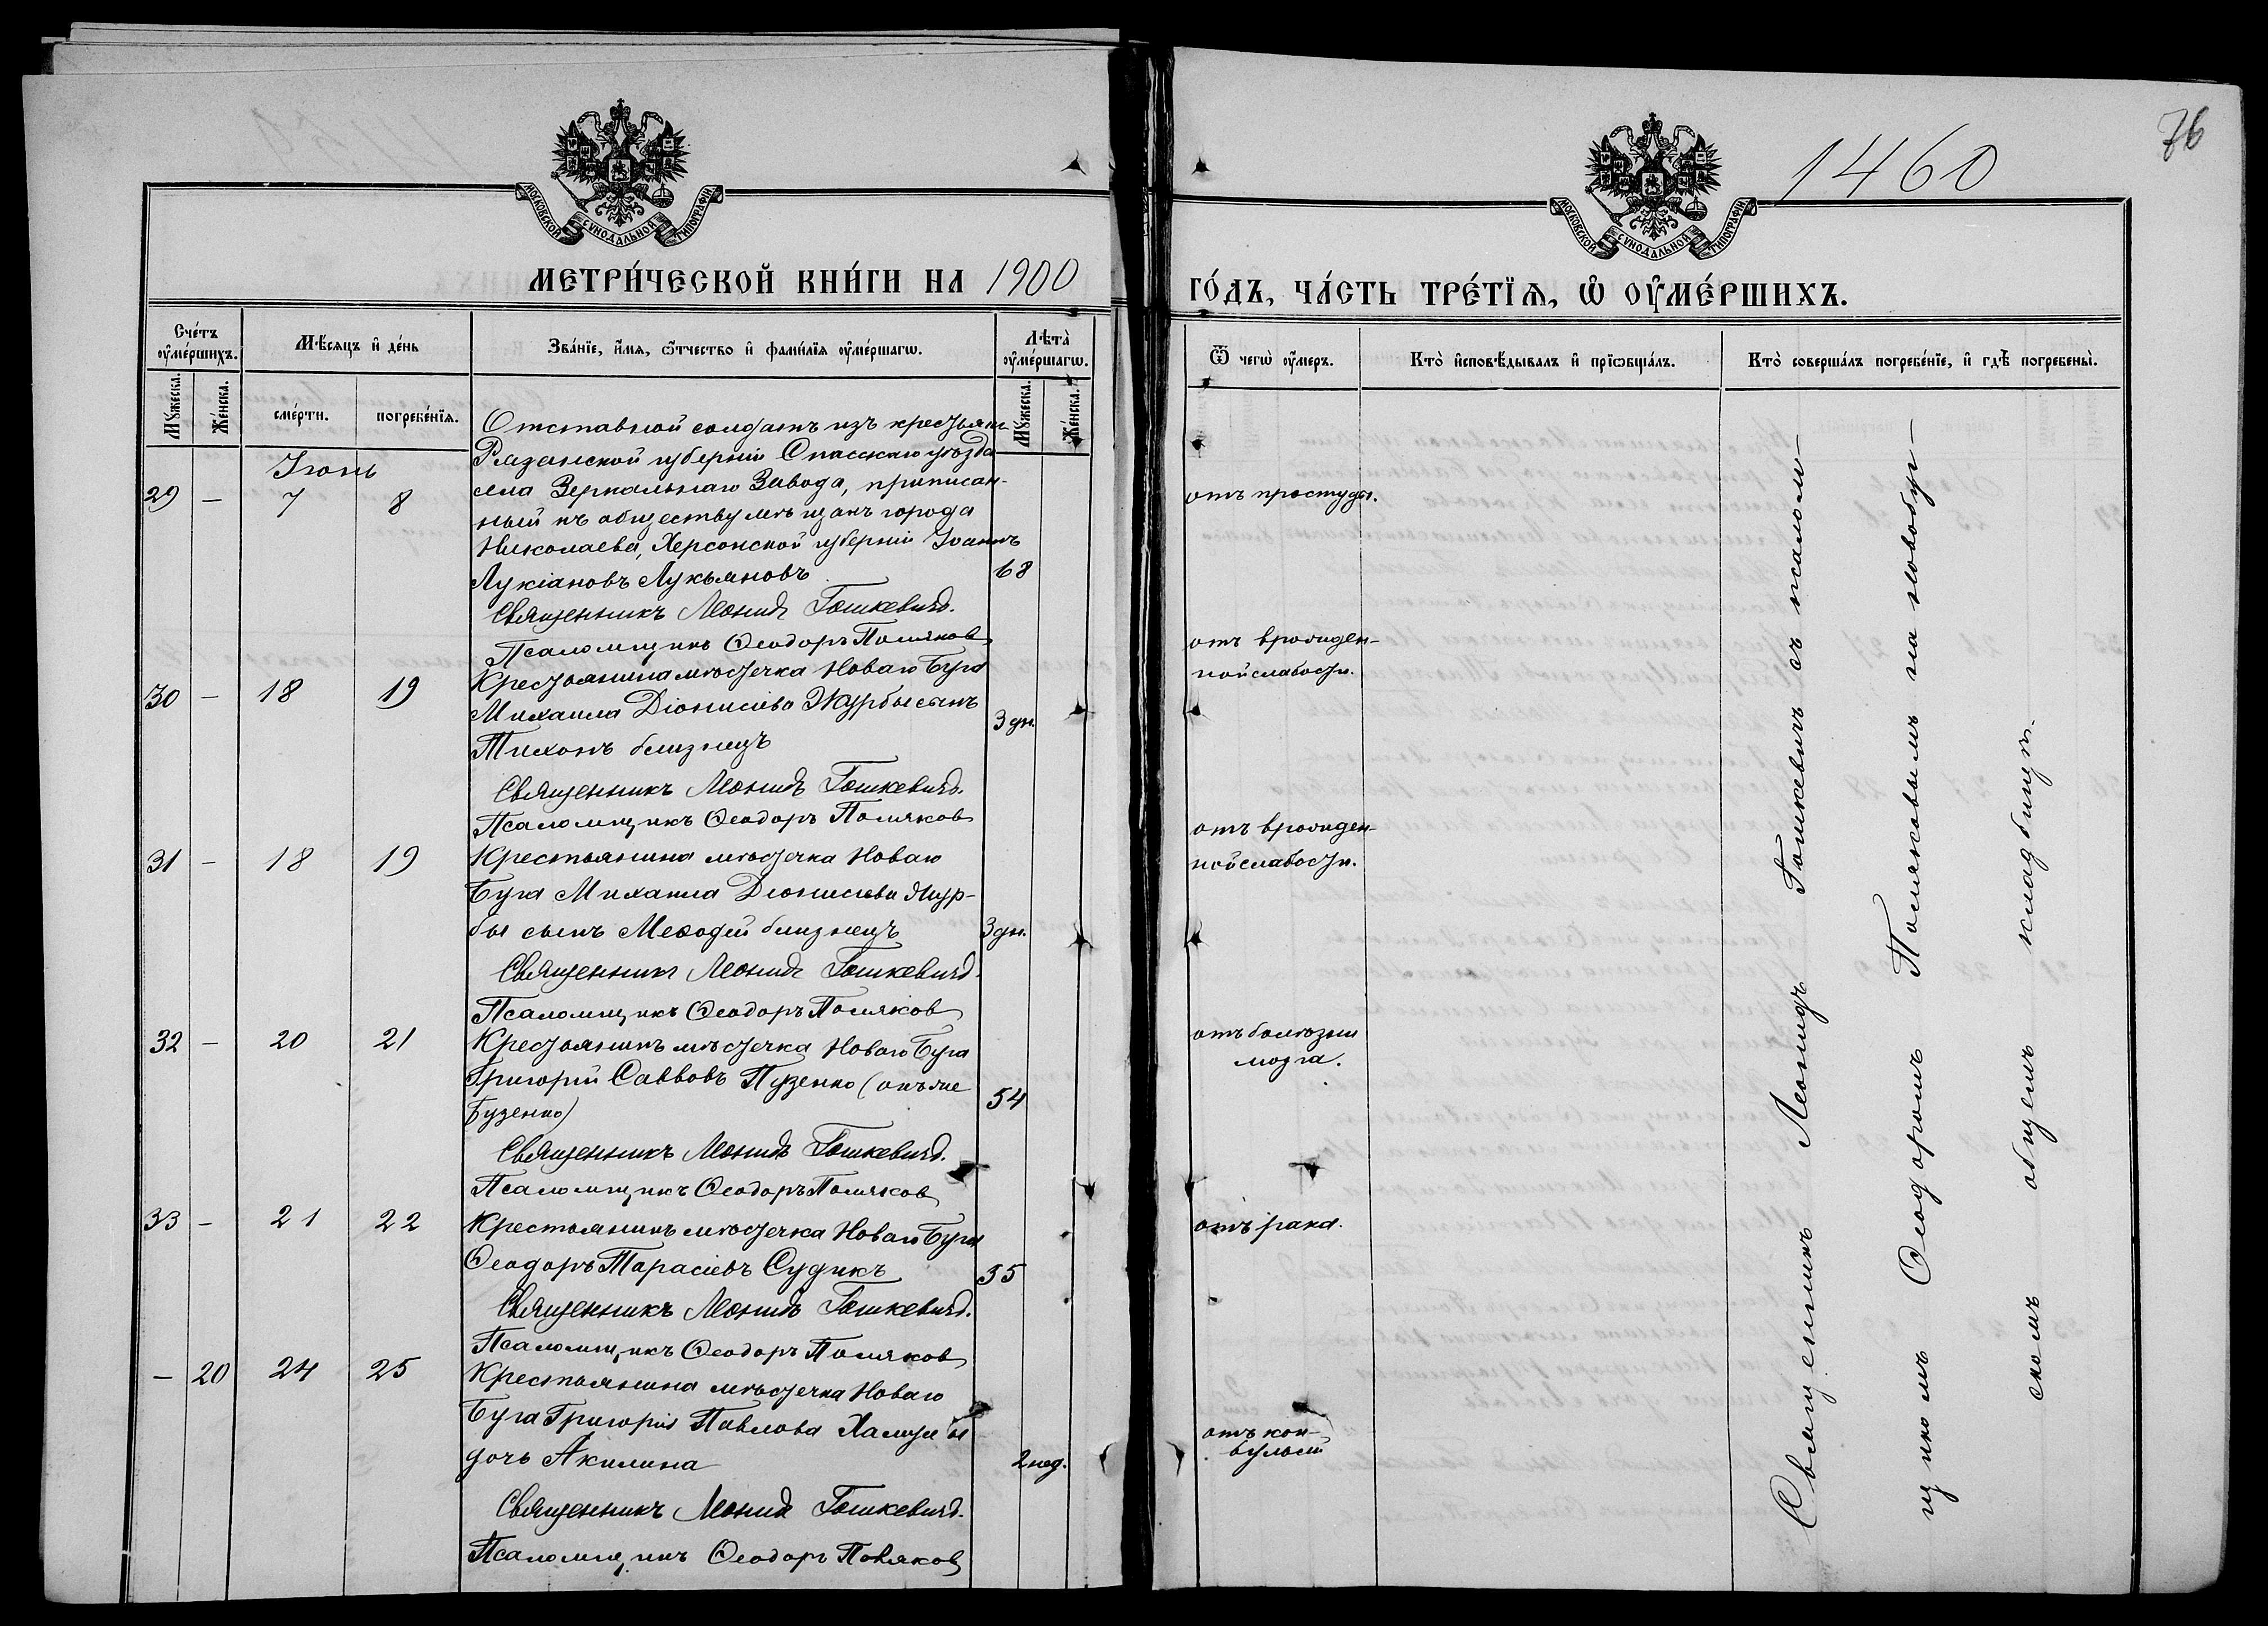 1460
76
МОСКОВСКОЙ СУНОДАЛЬНОЙ ТИПОГРАФІИ
МОСКОВСКОЙ СУНОДАЛЬНОЙ ТИПОГРАФІИ
МЕТРИ́ЧЕСКОЙ КНИ́ГИ НА 1900
ГО́ДЪ, ЧА́СТЬ ТРЕ́ТЇѦ, Ѡ҆ ОУ҆МЕ́РШИХЪ.
Сче́тъ оу҆ме́ршихъ.
Мѣ́сяцъ и҆ де́нь
Зва́нїе, и҆́мя, ѻ҆́тчество и҆ фами́лїя оу҆ме́ршагѡ.
Лѣ́та оу҆ме́ршагѡ.
Мꙋ́жеска.
Же́нска.
сме́рти.
погребе́нїя.
Мꙋ́жеска.
Же́нска.
Ѿ чегѡ̀ оу҆́меръ.
Кто̀ и҆сповѣ́дывалъ и҆ прїѡбща́лъ.
Кто̀ соверша́лъ погребе́нїе, и҆ гдѣ̀ погребены̀.
Отставной солдатъ изъ крестьянъ
Рязанской губерніи Спасскаго уѣзда
Іюнь
29 – 7 8 села Зеркальнаго Завода, приписан-
ный къ обществу мѣщанъ города
Николаева, Херсонской губерніи Іоаннъ
Лукіановъ Лукьяновъ 68
отъ простуды.
Священникъ Леонидъ Гошкевичъ.
Псаломщикъ Ѳеодоръ Поляковъ
30 – 18 19 Крестьянина мѣстечка Новаго Буга
Михаила Діонисіева Журбы сынъ
Тихонъ близнецъ 3 дн.
отъ врожден-
ной слабости.
Священникъ Леонидъ Гошкевичъ.
Псаломщикъ Ѳеодоръ Поляковъ
31 – 18 19 Крестьянина мѣстечка Новаго
Буга Михаила Діонисіева Жур-
бы сынъ Меѳодій близнецъ 3 дн.
отъ врожден-
ной слабости.
Священникъ Леонидъ Гошкевичъ.
Псаломщикъ Ѳеодоръ Поляковъ
32 – 20 21 Крестьянинъ мѣстечка Новаго Буга
Григорій Саввовъ Пузенко (онъ же
Бузенко) 54
отъ болѣзни
мозга.
Священникъ Леонидъ Гошкевичъ.
Псаломщикъ Ѳеодоръ Поляковъ
33 – 21 22 Крестьянинъ мѣстечка Новаго Буга
Ѳеодоръ Тарасіевъ Судикъ 55
отъ рака.
Священникъ Леонидъ Гошкевичъ.
Псаломщикъ Ѳеодоръ Поляковъ
– 20 24 25 Крестьянина мѣстечка Новаго
Буга Григорія Павлова
дочь Акилина 2 нед.
отъ кон-
вульсій
Священникъ Леонидъ Гошкевичъ.
Псаломщикъ Ѳеодоръ Поляковъ
Священникъ Леонидъ Гошкевичъ съ псалом-
щикомъ Ѳеодоромъ Поляковымъ на новобуг-
скомъ общемъ кладбищѣ.